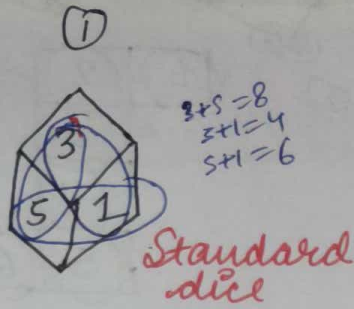 1
3
5 1
3+5=8
3+1=4
5+1=6
Standard
dice